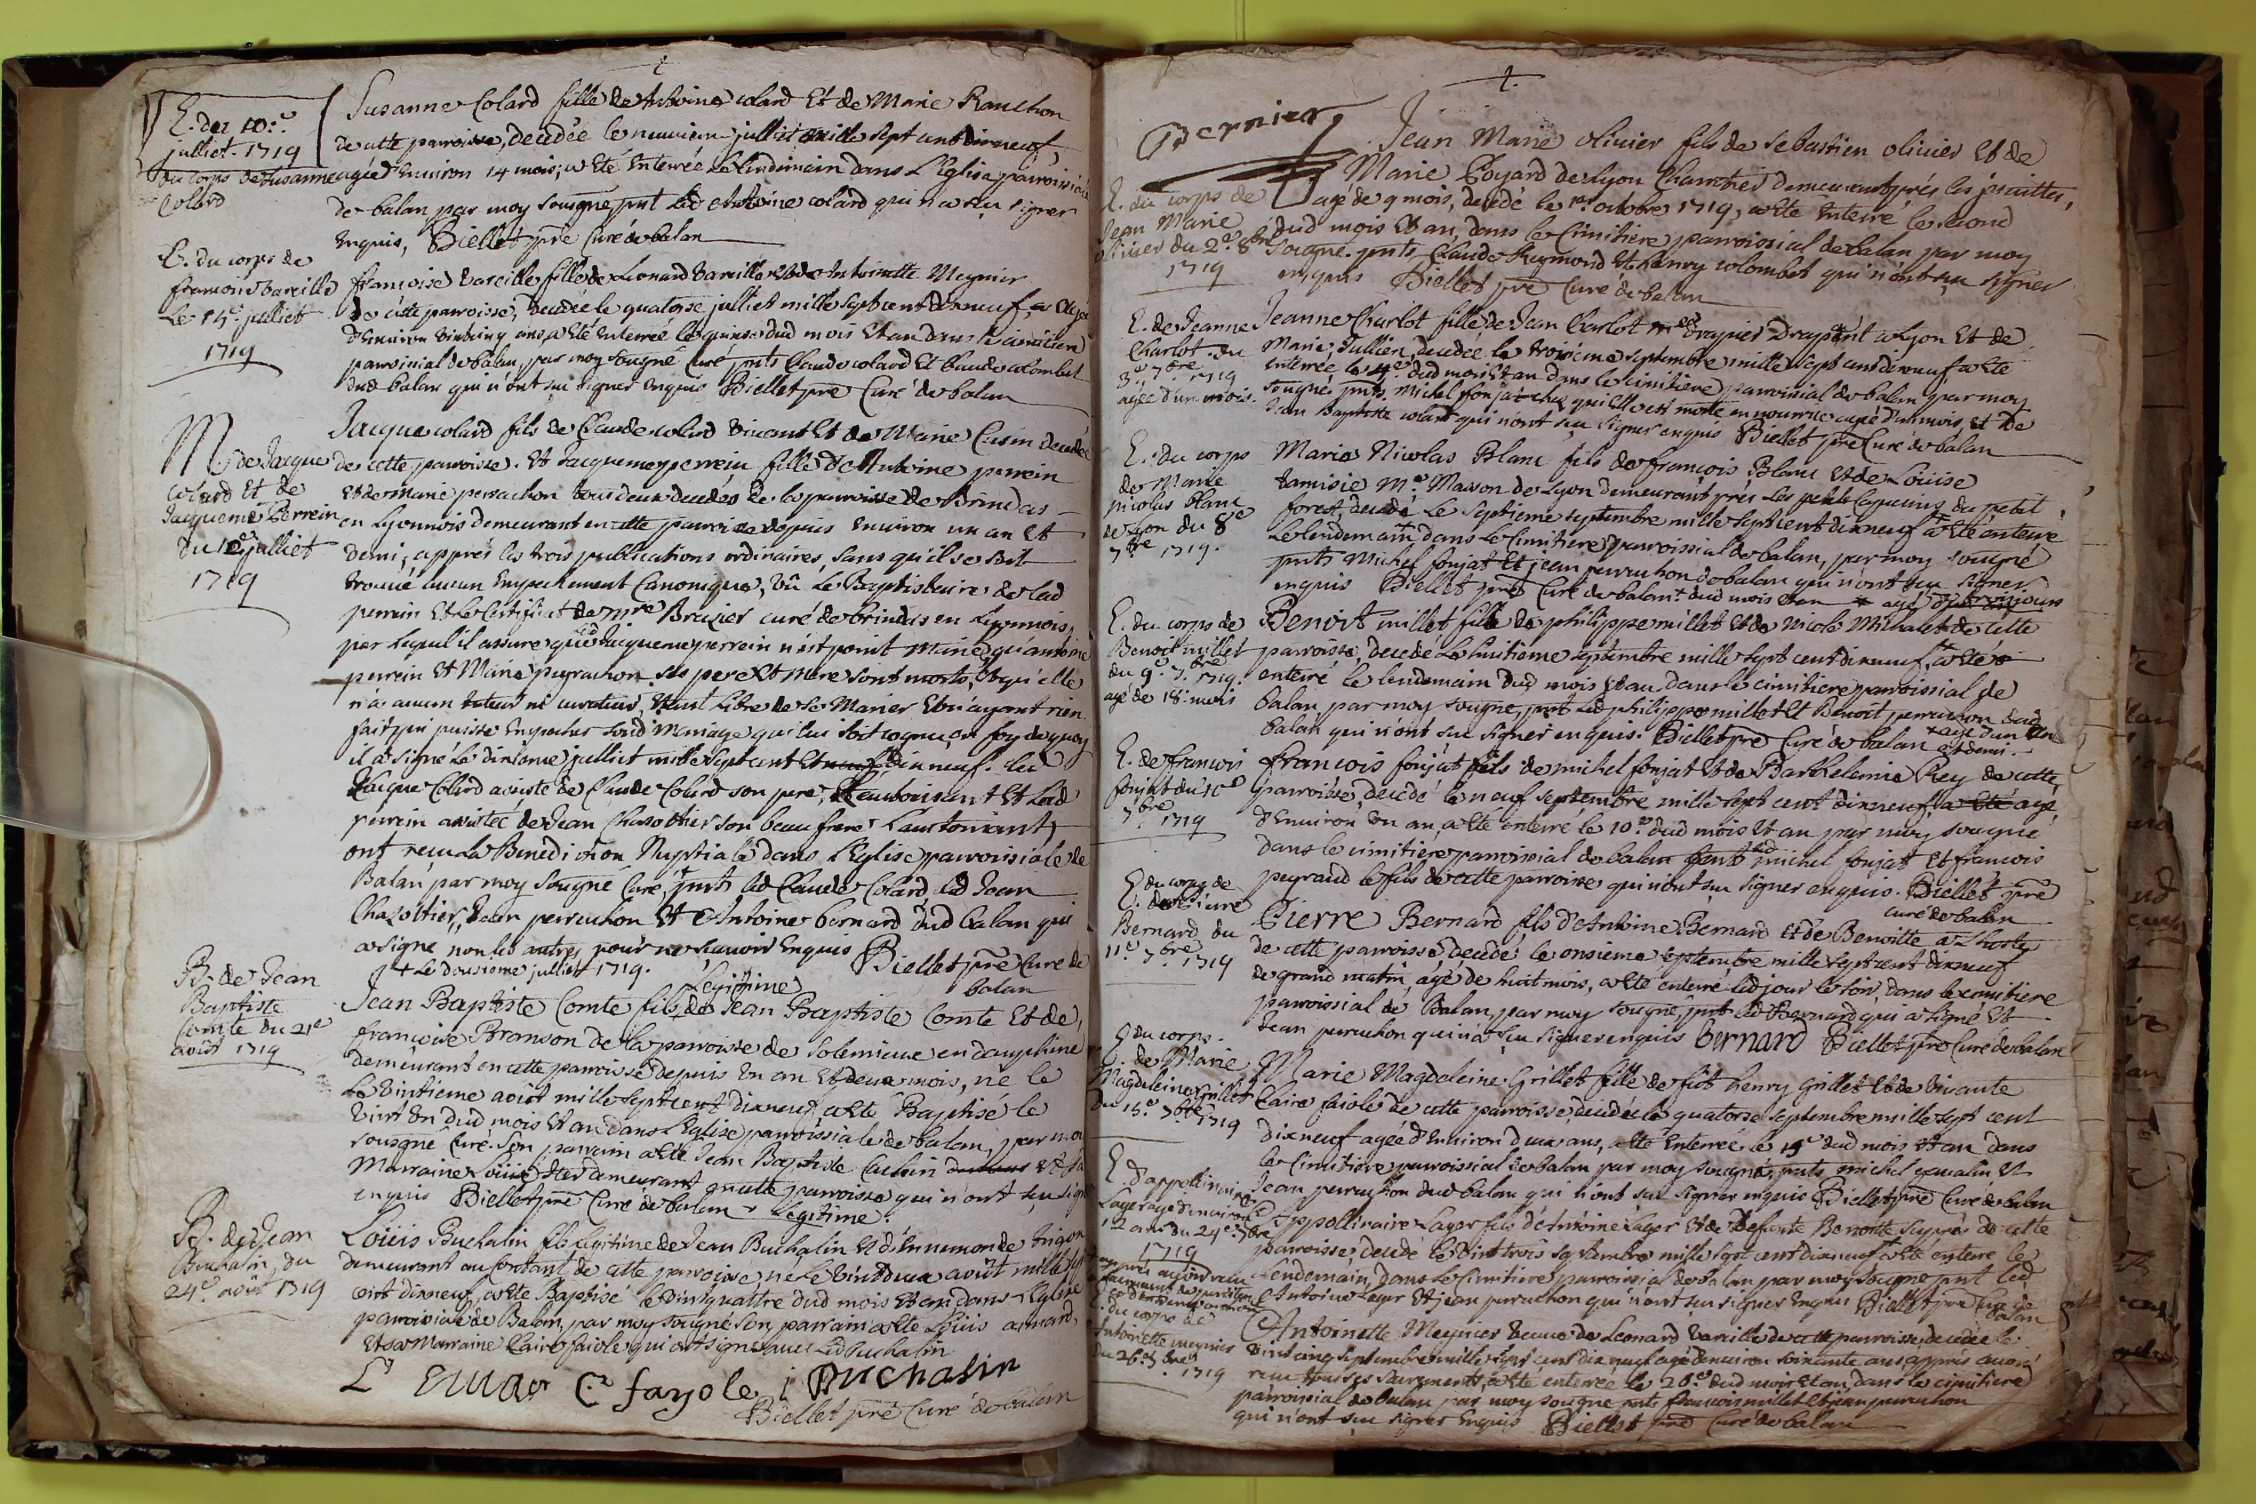 E. du 10.e
julliet. 1719
du corps de Susanne
Colard
Susanne Colard fille de Antoine colard Et de Marie Ranchon
de cette paroisse, decedée le neuvieme julliet mille sept cent dixneuf,
agée d'Environ 14 mois, a Eté Enterrée Le Lendemain dans L'Eglise parroissiale
de balan par moy sousigné, pnt led Antoine colard qui n'a sçu signer
Enquis, Biellet pre Curé de balan
E. du corps de
francoise vareille
Le 15e julliet
1719
francoise vareille fille de Leonard vareille et de Antoinette Meynier
de cette parroisse, decedée le quatorse julliet mille sept cent dixneuf, agée
d'Environ vintcinq ans a Eté Enterrée le quinse dud mois Et an dans le cimitiere
parroissial de balan par moy sousigné curé pnts Claude colard Et Claude colombet
dud balan qui n'ont sçu signer Enquis Biellet pre Curé de balan
M. de Jacque
Colard Et de
Jacqueme Perrein
du 12e julliet
1719
Jacque colard fils de Claude colard vivant Et de Marie Cusin decedée
de cette parroisse. Et Jacqueme perrein fille de Antoine perrein
Et de marie perrachon tous deux decedés de la parroisse de Brindas
en Lyonnois demeurant en cette parroisse depuis Environ un an Et
demi, apprés les trois publications ordinaires, sans qu'il se soit
trouvé aucun Empechement Canonique, vû Le Baptistaire de lad
perrein Et Le Certificat de Mre Brazier curé de brindas en Lyonnois,
par Lequel il assure que lad Jacqueme perrein n'est point mariée, qu'antoine
perrein Et Marie perrachon ses pere Et Mere sont morts, Et qu'elle
n'a aucun tuteur ni curateur, Etant Libre de se Marier Et n'ayant rien
fait qui puisse Empecher sond Mariage qui lui soit cognu, en foy de quoy
il a signé Le dixieme julliet mille sept cent dixneuf. led
Jacque Colard assisté de Claude Colard son pere, Et lad
perrein assistée de Jean Chasottier son beau frere
ont reçu la Benediction Nuptiale dans L'Eglise parroissiale de
Balan par moy Sousigné Curé, pnts led Claude Colard, led Jean
Chasottier, Jean perrachon Et Antoine bernard dud balan qui
a signé non les autres pour ne sçavoir Enquis Biellet pre Curé de
+ Le dousieme julliet 1719. balan
B. de Jean
Baptiste
Comte du 21e
août 1719
Legitime
Jean Baptiste Comte fils de Jean Baptiste Comte Et de
francoise Branson de la parroisse de Solemieue en dauphiné
demeurant en cette parroisse depuis un an Et deux mois, né le
Le vintieme août mille sept cent dixneuf a Eté Baptisé le
vint un dud mois Et an dans L'Eglise parroissiale de balan, par moy
sousigné Curé. Son parrain a Eté Jean Baptiste Cachin Et sa
Marraine demeurant en cette parroisse qui n'ont sçu signer
enquis Biellet pre Curé de balan Legitime.
B. de Jean
Buchalin, du
24e août 1719
Loüis Buchalin fils legitime de Jean Buchalin Et d'Ennemonde
demeurant de cette parroisse né Le vintdeux août mille sept
cent dixneuf, a Eté Baptisé le vintquattre dud mois Et an dans L'Eglise
parroissiale de Balan, par moy sousigné son parrain a Eté Loüis
Et sa Marraine Claire faiole qui ont signé avec led Buchalin
C. fayole i Buchalin
Biellet pre Curé de balan
Bernier
E. du corps de
Jean Marie
olivier du 2e 8bre
1719
Jean Marie olivier fils de Sebastien olivier Et de
Marie Foyard de Lyon demeurant prés les jesuittes,
agé de 9 mois, decedé le 1er octobre 1719, a Eté Enterré le second
dud mois Et an, dans le Cimitiere parroissial de balan par moy
Sousigné. pnts Claude Reymond Et henry colombet qui n'ont sçu signer
enquis Biellet pre Curé de balan
E. de Jeanne
Charlot. du
3e 7bre 1719
agée d'un mois.
Jeanne Charlot fille de Jean Charlot Me Drapier Drapant a Lyon Et de
Marie Jullien, decedée le troisieme septembre mille sept cent dixneuf a Eté
Enterrée le 4e dud mois Et an dans le cimitiere parroissial de balan par moy
sousigné, pnts Michel fonjat chez qui Elle est morte en nourrice agée d'un mois, Et de
Jean Baptiste colard qui n'ont sçu signer enquis Biellet pre Curé de balan
E. du corps
de Marie
nicolas blanc
de Lyon du 8e
7bre 1719.
Marie Nicolas Blanc fils de francois Blanc Et de Loüise
tamisie Me Masson de Lyon demeurant prés Les petits Capucins du petit
forest, decedé Le septieme septembre mille sept cent dixneuf a Eté enterré
Le lendemain dans Le Cimitiere parroissial de balan, par moy sousigné
pnts Michel fonjat Et jean perrachon de balan qui n'ont sçu signer
enquis Biellet pre Curé de balan + dud mois Et an + agé
E. du corps de
Benoit millet
du 9e 7bre 1719.
agé de 18 mois
Benoit millet fils de philippe millet Et de Nicole Michalet de cette
parroisse, decedé Le huitieme septembre mille sept cent dixneuf, a Eté
enterré le lendemain dud mois Et an dans le cimitiere parroissial de
balan par moy sousigné, pnt led philippe millet Et Benoit perrachon dud
balan qui n'ont sçu signer enquis. Biellet pre Curé de balan + agé d'un an
et demi.
E. de francois
fonjat du 10e
7bre 1719
francois fonjat fils de michel fonjat Et de Barthelemie Rey de cette
parroisse, decedé le neuf septembre mille sept cent dixneuf, agé
d'Environ un an, a Eté enterré le 10e dud mois Et an par moy sousigné
dans le cimitiere parroissial de balan pnts led michel fonjat Et francois
peyraud le fils de cette parroisse qui n'ont sçu signer enquis. Biellet pre
curé de balan
E. du corps de
de Pierre
Bernard du
11e 7bre 1719
Pierre Bernard fils d'Antoine Bernard Et de Benoitte
de cette parroisse decedé le onsieme septembre mille sept cent dixneuf
de grand matin, agé de huit mois, a Eté enterré led jour le soir, dans le cimitiere
parroissial de Balan, par moy sousigné, pnt led Bernard qui a signé Et
Jean perrachon qui n'a sçu signer enquis Bernard Biellet pre Curé de balan
E. du corps.
de Marie
Magdeleine Grillet
du 15e 7bre 1719
Marie Magdeleine Grillet fille de fût henry Grillet Et de vivante
Claire faiole de cette parroisse decedée le quatorse septembre mille sept cent
dixneuf agée d'Environ deux ans, a Eté Enterrée le 15e dud mois Et an dans
le Cimitiere parroissial de balan par moy sousigné, pnts michel Et
Jean perrachon dud balan qui n'ont sçu signer enquis Biellet pre Curé de balan
E. d'appollinaire
Layer agé d'environ
12 ans du 24e 7bre
1719
Appollinaire Layer fils d'Antoine Layer Et de defunte Benoitte de cette
parroisse, decedé le vint trois septembre mille sept cent dixneuf a Eté enterré le
Lendemain, dans Le Cimitiere parroissial de balan par moy sousigné pnt led
Antoine Layer Et jean perrachon qui n'ont sçu signer enquis Biellet pre Curé de
balan
E. du corps de
Antoinette meynier
du 26e 7bre
1719
Antoinette Meynier veuve de Leonard vareille de cette parroisse, decedée le
vintcinq septembre mille sept cent dixneuf agée d'environ soixante ans, apprés avoir
reçu tous ses sacrements, a Eté enterrée le 26e dud mois Et an, dans le cimitiere
parroissial de balan par moy sousigné pnts francois millet Et jean perrachon
qui n'ont sçu signer Enquis Biellet pre Curé de balan